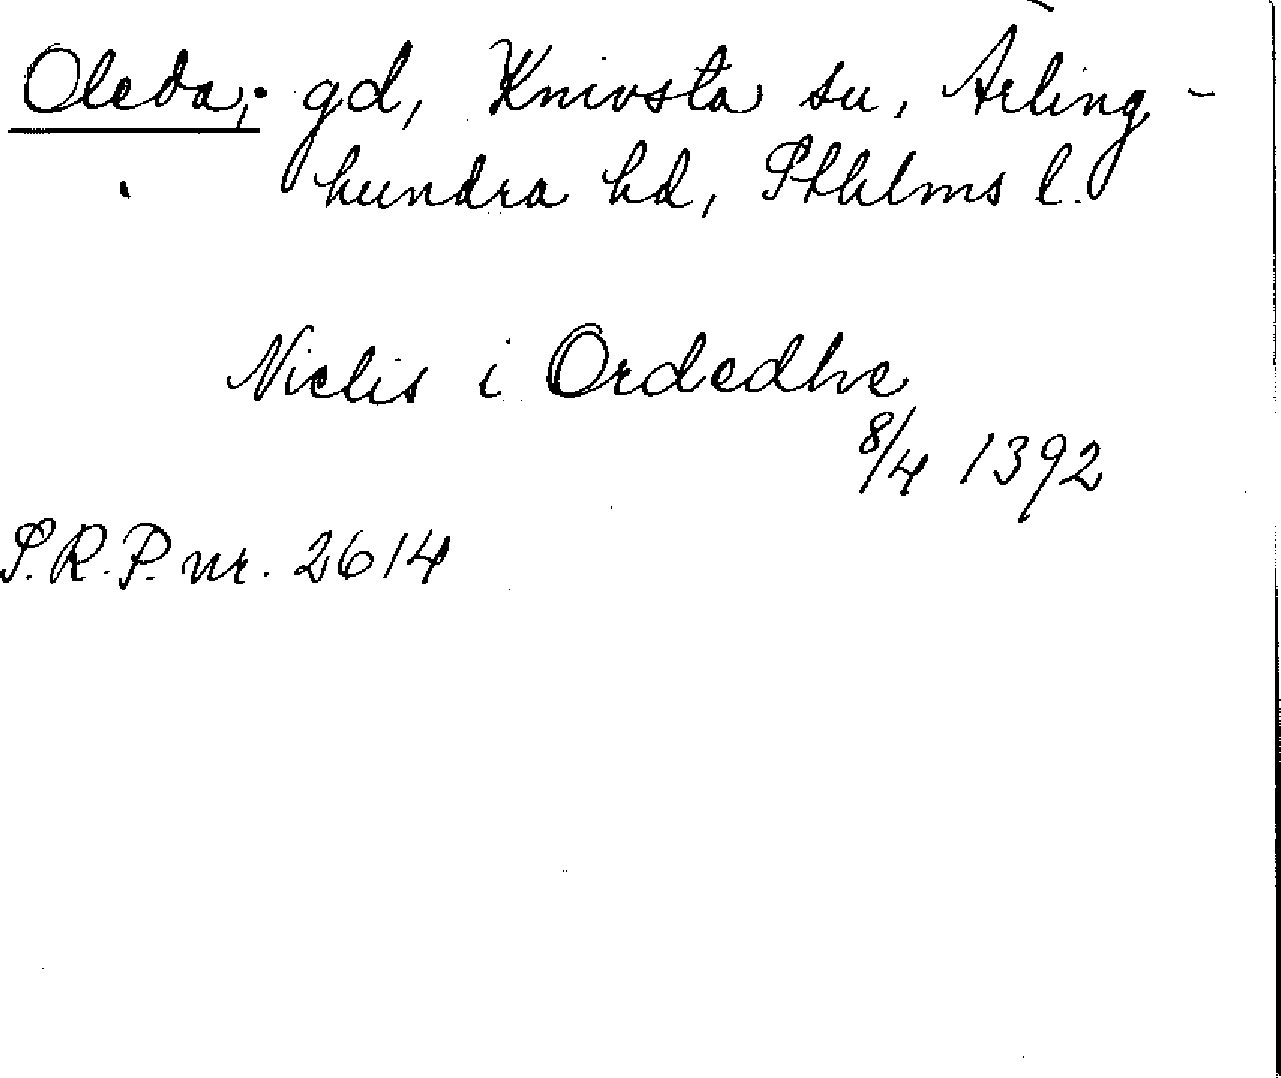 Oleda, gd, Knivsta sn, Ärling-
hundra hd, Sthlms l.
Niclis i Ordedhe
8/4 1392
S.R.P. nr. 2614